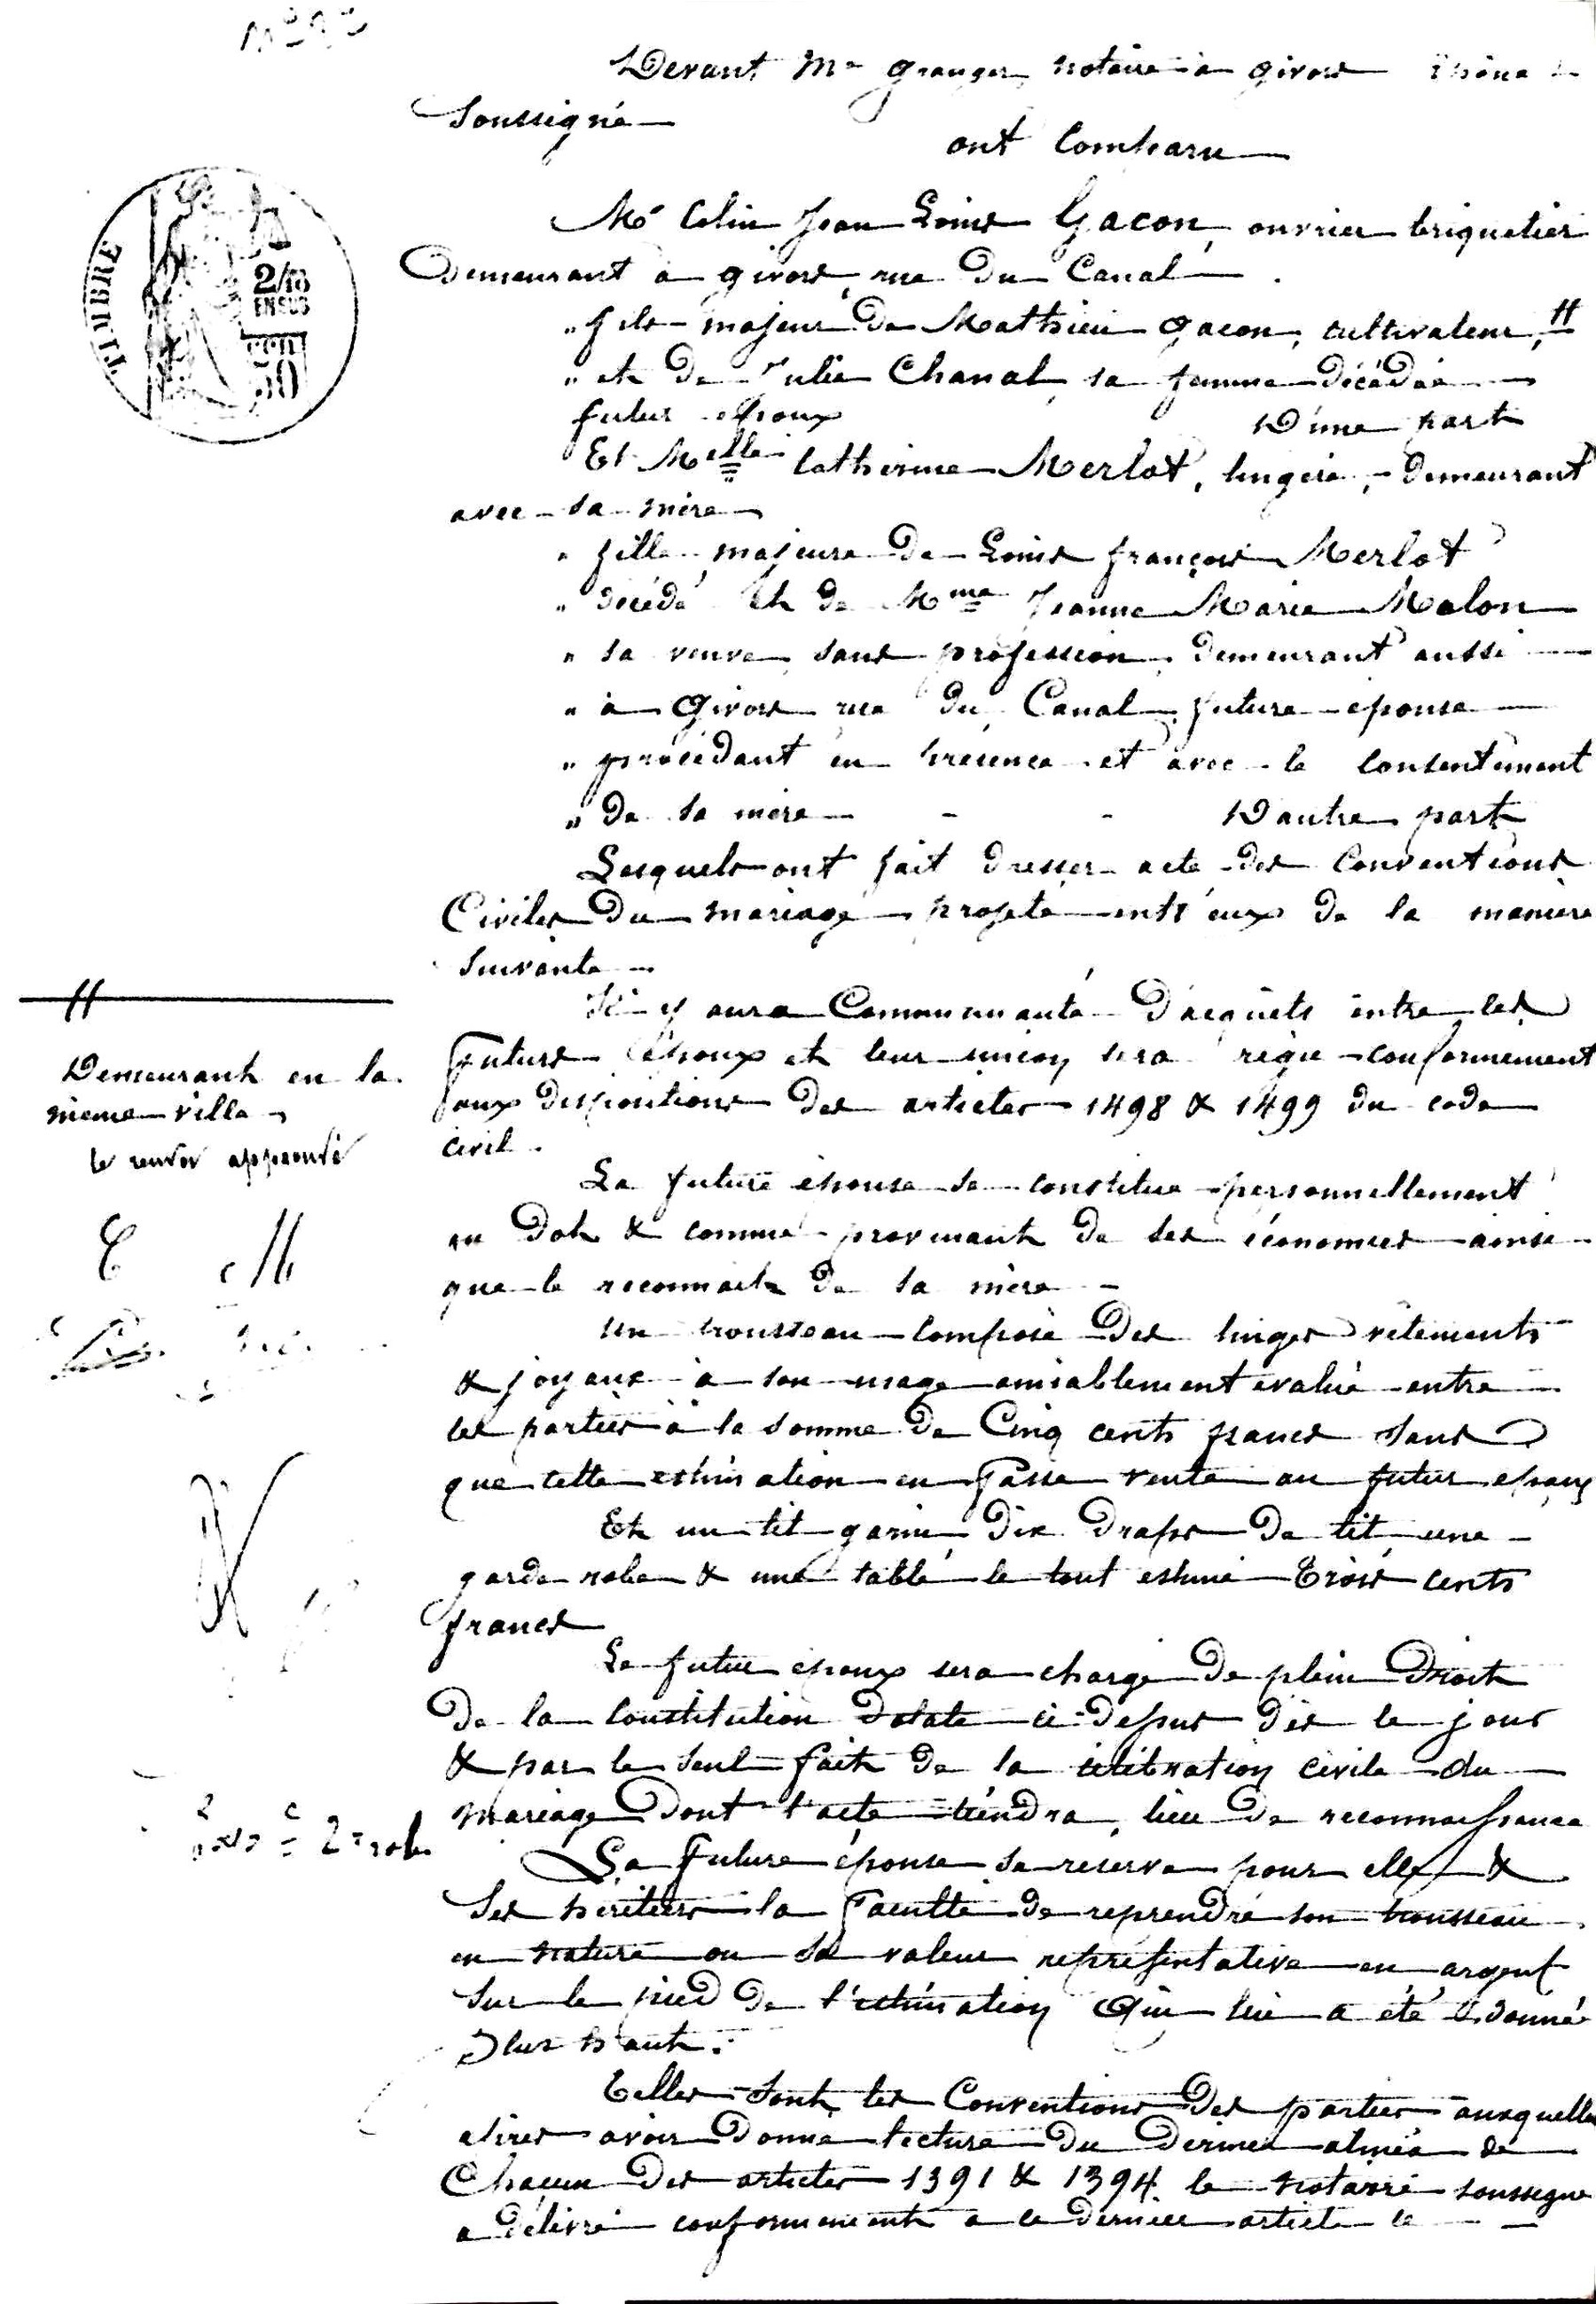 Devant Me Granger notaire à Givors Rhône
soussigné
ont Comparu
Mr Colin Jean Louis Gacon, ouvrier briquetier
Demeurant à Givors, rue du Canal.
" fils majeur de Mathieu Gacon, cultivateur, #
" et de Julie Chanal, sa femme décédée
futur époux D'une part
Et Melle Catherine Merlat, lingère, demeurant
avec sa mère
" fille majeure de Louis François Merlat
" décédé et de Mme Jeanne Marie Malon
" sa veuve, sans profession, demeurant aussi
" à Givors rue du Canal, future épouse
" procédant en présence et avec le consentement
" de sa mère - - D'autre part
Lesquels ont fait dresser acte des Conventions
Civiles du mariage projeté entr'eux de la manière
suivante
Il y aura Communauté d'acquêts entre les
futurs époux et leur union sera régie conformément
aux dispositions des articles 1498 & 1499 du code
civil.
La future épouse se constitue personnellement
en dot & comme provenant de ses économies ainsi
que le reconnait de sa mère
Un trousseau composé des linges vêtements
& joyaux à son usage amiablement évalué entre
les parties à la somme de Cinq cents francs sans
que cette estimation en fasse vente au futur époux
Et un lit garni, dix draps de lit, une
garde robe & une table le tout estimé Trois cents
francs
Le futur époux sera chargé de plein droit
de la constitution dotale ci-dessus dès le jour
& par le seul fait de la célébration civile du
mariage dont l'acte tiendra lieu de reconnaissance
La future épouse se réserve pour elle &
ses héritiers la faculté de reprendre son trousseau
en nature ou sa valeur représentative en argent
sur le pied de l'estimation qui lui a été donnée
plus haut.
Telles sont les Conventions des parties auxquelles
après avoir donné lecture du dernier alinéa de
Chacun des articles 1391 & 1394. le notaire soussigné
a délivré conformément à ce dernier article le
TIMBRE
2/10
EN SUS
50
#
Demeurant en la
même ville
le renvoi approuvé
C M